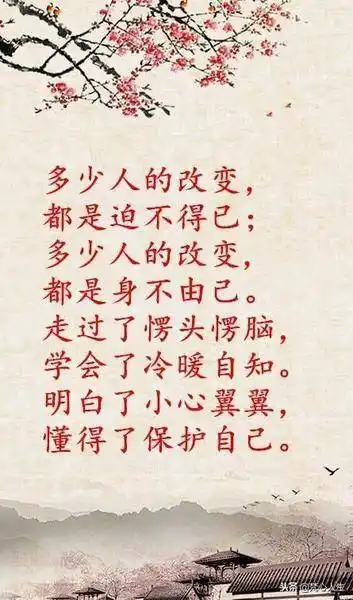 多少人的改变，
都是迫不得已；
多少人的改变，
都是身不由己。
走过了愣头愣脑，
学会了冷暖自知。
明白了小心翼翼，
懂得了保护自己。